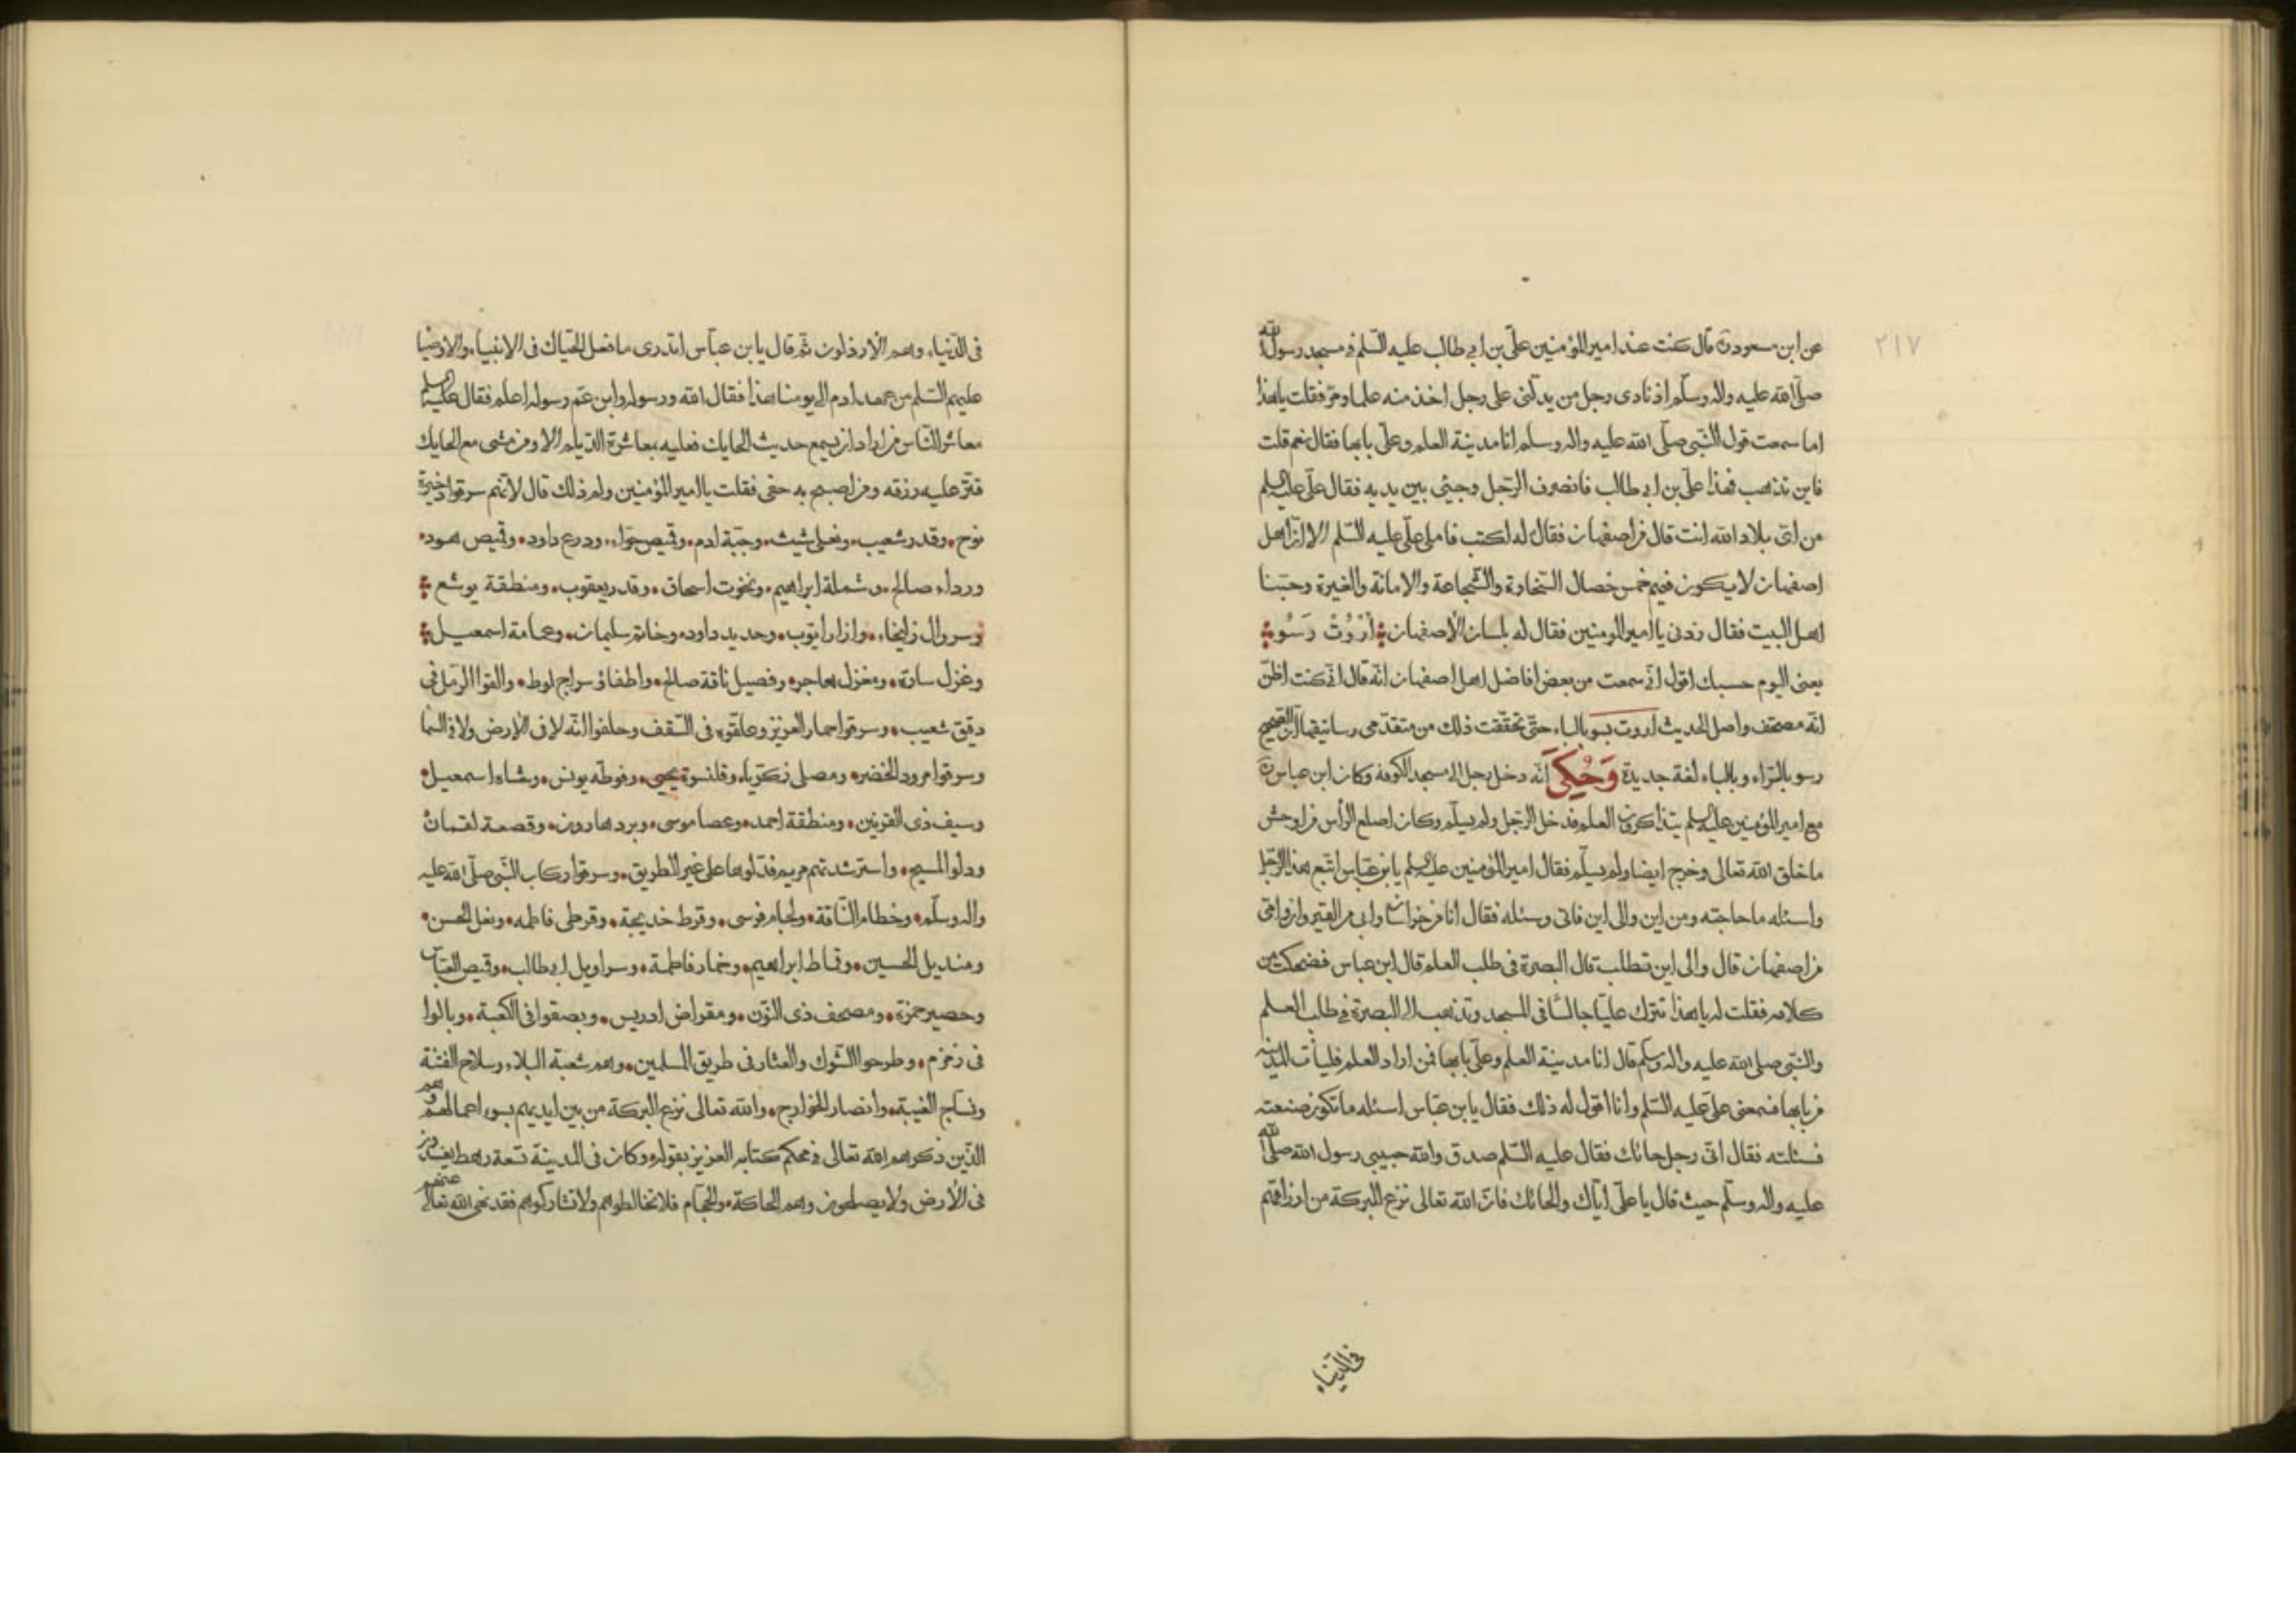 ٢١٧
عن ابن مسعود قال كنت عند امير المؤمنين علّى بن ابى طالب عليه السّلم فى مسجد رسول الله
صلّى الله عليه واله وسلّم اذ نادى رجل من يدلّنى على رجل اخذ منه علما ومرّ فقلت يا هذا
اما سمعت قول النّبى صلّى الله عليه واله وسلم انا مدينة العلم وعلّى بابها فقال نعم قلت
فاين تذهب فهذا علّى بن ابى طالب فانصرف الرّجل وجثى بين يديه فقال علّى عليه السلم
من اىّ بلاد الله انت قال من اصفهان فقال له اكتب فاملى علّى عليه السّلم الا انّ اهل
اصفهان لا يكون فيهم خمس خصال السّخاوة والشّجاعة والامانة والغيرة وحبّنا
اهل البيت فقال زدنى يا امير المومنين فقال له بلسان الأصفهان أرْوُتْ رَسْو
يعنى اليوم حسبك اقول انّى سمعت من بعض افاضل اهل اصفهان انّه قال انّى كنت اظنّ
انّه مصحّف واصل الحديث اروت بسو بالباء حتّى تحقّقت ذلك من متقدّمى رساتيقها انّ الصحيح
رسو بالرّاء وبالباء لغة جديدة وَحُكِىَ انّه دخل رجل الى مسجد الكوفة وكان ابن عباس
مع امير المؤمنين عليه السلم يتذاكرون العلم فدخل الرّجل ولم يسلّم وكان اصلع الرّأس من اوحش
ما خلق الله تعالى وخرج ايضا ولم يسلّم فقال امير المؤمنين عليه السلم يا بن عبّاس اتّبع هذا الرّجل
واسئله ما حاجته ومن اين والى اين فاتى وسئله فقال انا من خراسان وابى من القيروان وامّى
من اصفهان قال والى اين تطلب قال البصرة فى طلب العلم قال ابن عباس فضحكت من
كلامه فقلت له يا هذا تترك عليّا جالسًا فى المسجد وتذهب الى البصرة فى طلب العلم
والنّبّى صلى الله عليه واله وسلّم قال انا مدينة العلم وعلّى بابها فمن اراد العلم فليأت المدينة
من بابها فسمعنى علّى عليه السّلم وانا اقول له ذلك فقال يا بن عبّاس اسئله ما تكون صنعته
فسئلته فقال انّى رجل حائك فقال عليه السّلم صدق والله حبيبى رسول الله صلّى الله
عليه واله وسلّم حيث قال يا علّى ايّاك والحائك فانّ الله تعالى نزع البركة من ارزاقهم
فى الدّنيا
فى الدّنيا وهم الأرذلون ثمّ قال يا بن عبّاس اتدرى ما فعل الحيّاك فى الانبياء والاوصيا
عليهم السّلم من عهد ادم الى يومنا هذا فقال الله ورسوله وابن عم رسوله اعلم فقال عليه السلم
معاشر النّاس من اراد ان يسمع حديث الحايك فعليه بمعاشرة الدّيلم الا ومن مشى مع الحايك
قتّر عليه رزقه ومن اصبح به جفى فقلت يا امير المؤمنين ولم ذلك قال لانّهم سرقوا ذخيرة
نوح وقدر شعيب ونعلى شيث وجبّة ادم وقميص حوّا ودرع داود وقميص هود
ورداء صالح وشملة ابراهيم ونخوت اسحاق وقدر يعقوب ومنطقة يوشع
وسروال زليخاء وازار ايّوب وحديد داود وخاتم سليمان وعمامة اسمعيل
وغزل سارة ومغزل هاجر وفصيل ناقة صالح واطفاؤ سراج لوط والقوا الرّمل فى
دقيق شعيب وسرقوا حمار العزيز وعلّقوه فى السّقف وحلفوا انّه لا فى الأرض ولا فى السّما
وسرقوا مرود الخضر ومصلى زكريّا وقلنسوة يحيى وفوطه يونس وشاة اسمعيل
وسيف ذى القرنين ومنطقة احمد وعصا موسى وبرد هارون وقصعة لقمان
ودلو المسيح واسترشدتهم مريم فدلّوها على غير الطريق وسرقوا ركاب النّبى صلّى الله عليه
واله وسلّم وخطام النّاقة ولجام فرسى وقرط خديجة وقرطى فاطمه ونعل الحسن
ومنديل الحسين وقماط ابراهيم وخمار فاطمة وسراويل ابى طالب وقميص العبّاس
وحصير حمزة ومصحف ذى النّون ومقراض ادريس وبصقوا فى الكعبة وبالوا
فى زمزم وطرحوا الشّوك والعثار فى طريق المسلمين وهم شعبة البلاء وسلاح الفتنة
ونسّاج الغيبة وانصار الخوارج والله تعالى نزع البركة من بين ايديهم بسوء اعمالهم وهم
الّذين ذكرهم الله تعالى فى محكم كتابه العزيز بقوله وكان فى المدينة تسعة رهط يفسدون
فى الأرض ولا يصلحون وهم الحاكة والحجّام فلا تخالطوهم ولا تشاركوهم فقد نهى الله تعالى عنهم